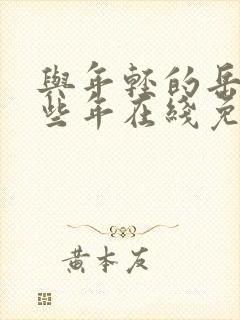 與年輕的岳
些年在綫免
黄本友